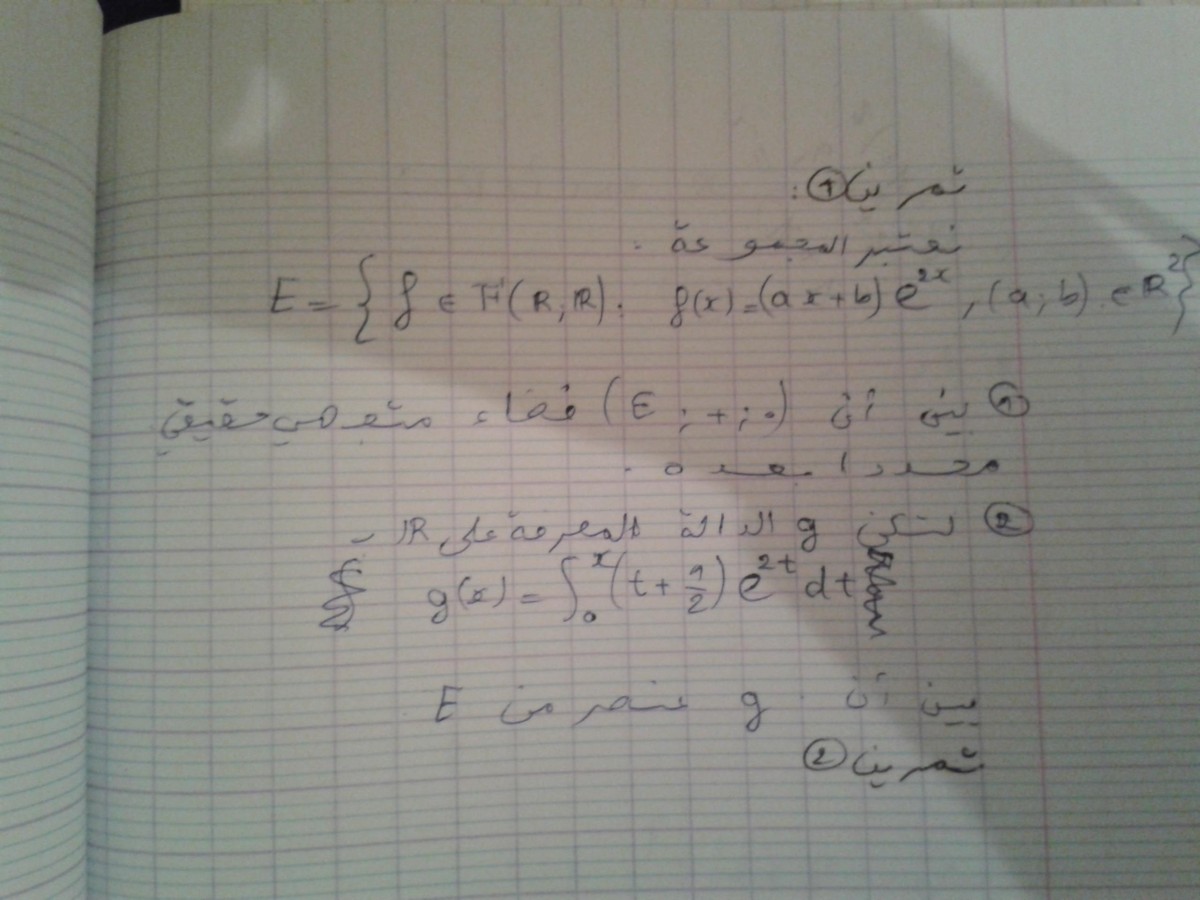 تمرين ①:
نعتبر المجموعة.
E = { f ∈ F(ℝ, ℝ). f(x) = (ax + b) e^{2x} , (a; b) ∈ ℝ² }
① بين أن (E ; + ; .) فضاء متجهي حقيقي
محددا بعده.
② لتكن g الدالة المعرفة على ℝ
g(x) = ∫₀ˣ (t + 1/2) e^{2t} dt
بين أن g عنصر من E
تمرين ②